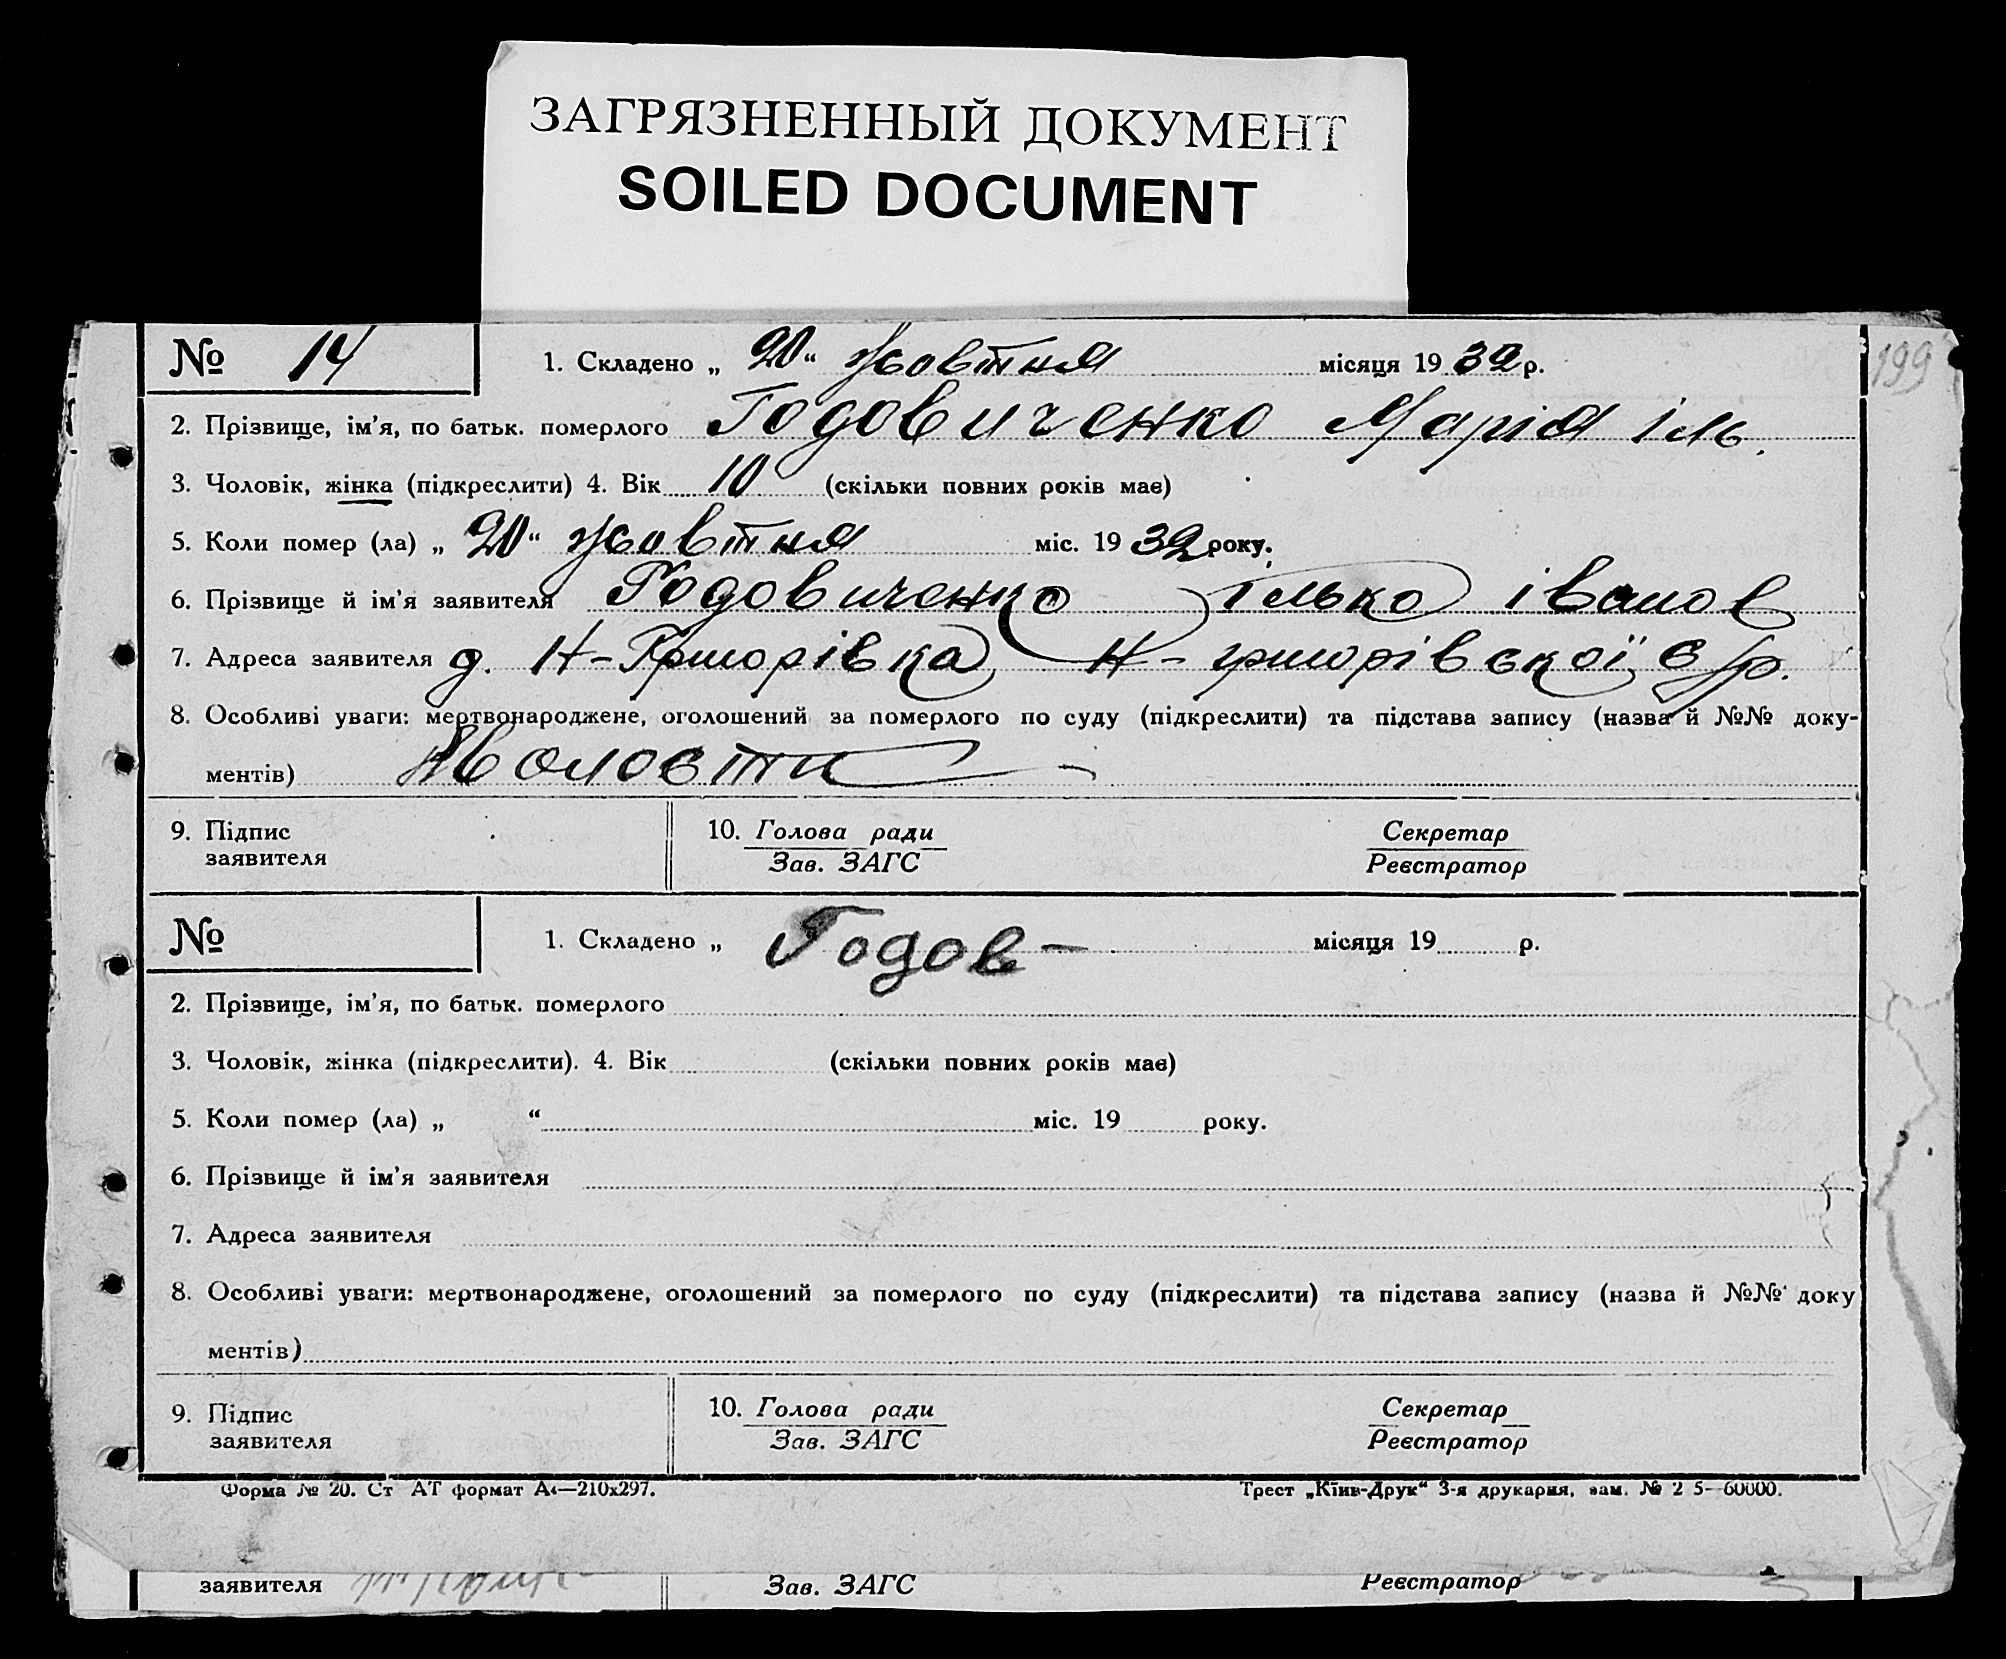 ЗАГРЯЗНЕННЫЙ ДОКУМЕНТ
SOILED DOCUMENT
199
№ 14 1. Складено „ 20 “ Жовтня місяця 19 32 р.
2. Прізвище, ім’я, по батьк. померлого Годовиченко Марія Іль.
3. Чоловік, жінка (підкреслити) 4. Вік 10 (скільки повних років має)
5. Коли помер (ла) „ 20 “ Жовтня міс. 19 32 року.
6. Прізвище й ім’я заявителя Годовиченко Ілько Іванов
7. Адреса заявителя д. Н-Григорівка Н-григорівської с/р.
8. Особливі уваги: мертвонароджене, оголошений за померлого по суду (підкреслити) та підстава запису (назва й №№ доку-
ментів)
9. Підпис 10. Голова ради Секретар
заявителя Зав. ЗАГС Реєстратор
№ 1. Складено „ Годов – місяця 19 р.
2. Прізвище, ім’я, по батьк. померлого
3. Чоловік, жінка (підкреслити). 4. Вік (скільки повних років має)
5. Коли помер (ла) „ “ міс. 19 року.
6. Прізвище й ім’я заявителя
7. Адреса заявителя
8. Особливі уваги: мертвонароджене, оголошений за померлого по суду (підкреслити) та підстава запису (назва й №№ доку
ментів)
9. Підпис 10. Голова ради Секретар
заявителя Зав. ЗАГС Реєстратор
Форма № 20. Ст АТ формат А4—210х297. Трест „Київ-Друк“ 3-я друкарня, зам. № 2 5—60000.
заявителя Зав. ЗАГС Реєстратор